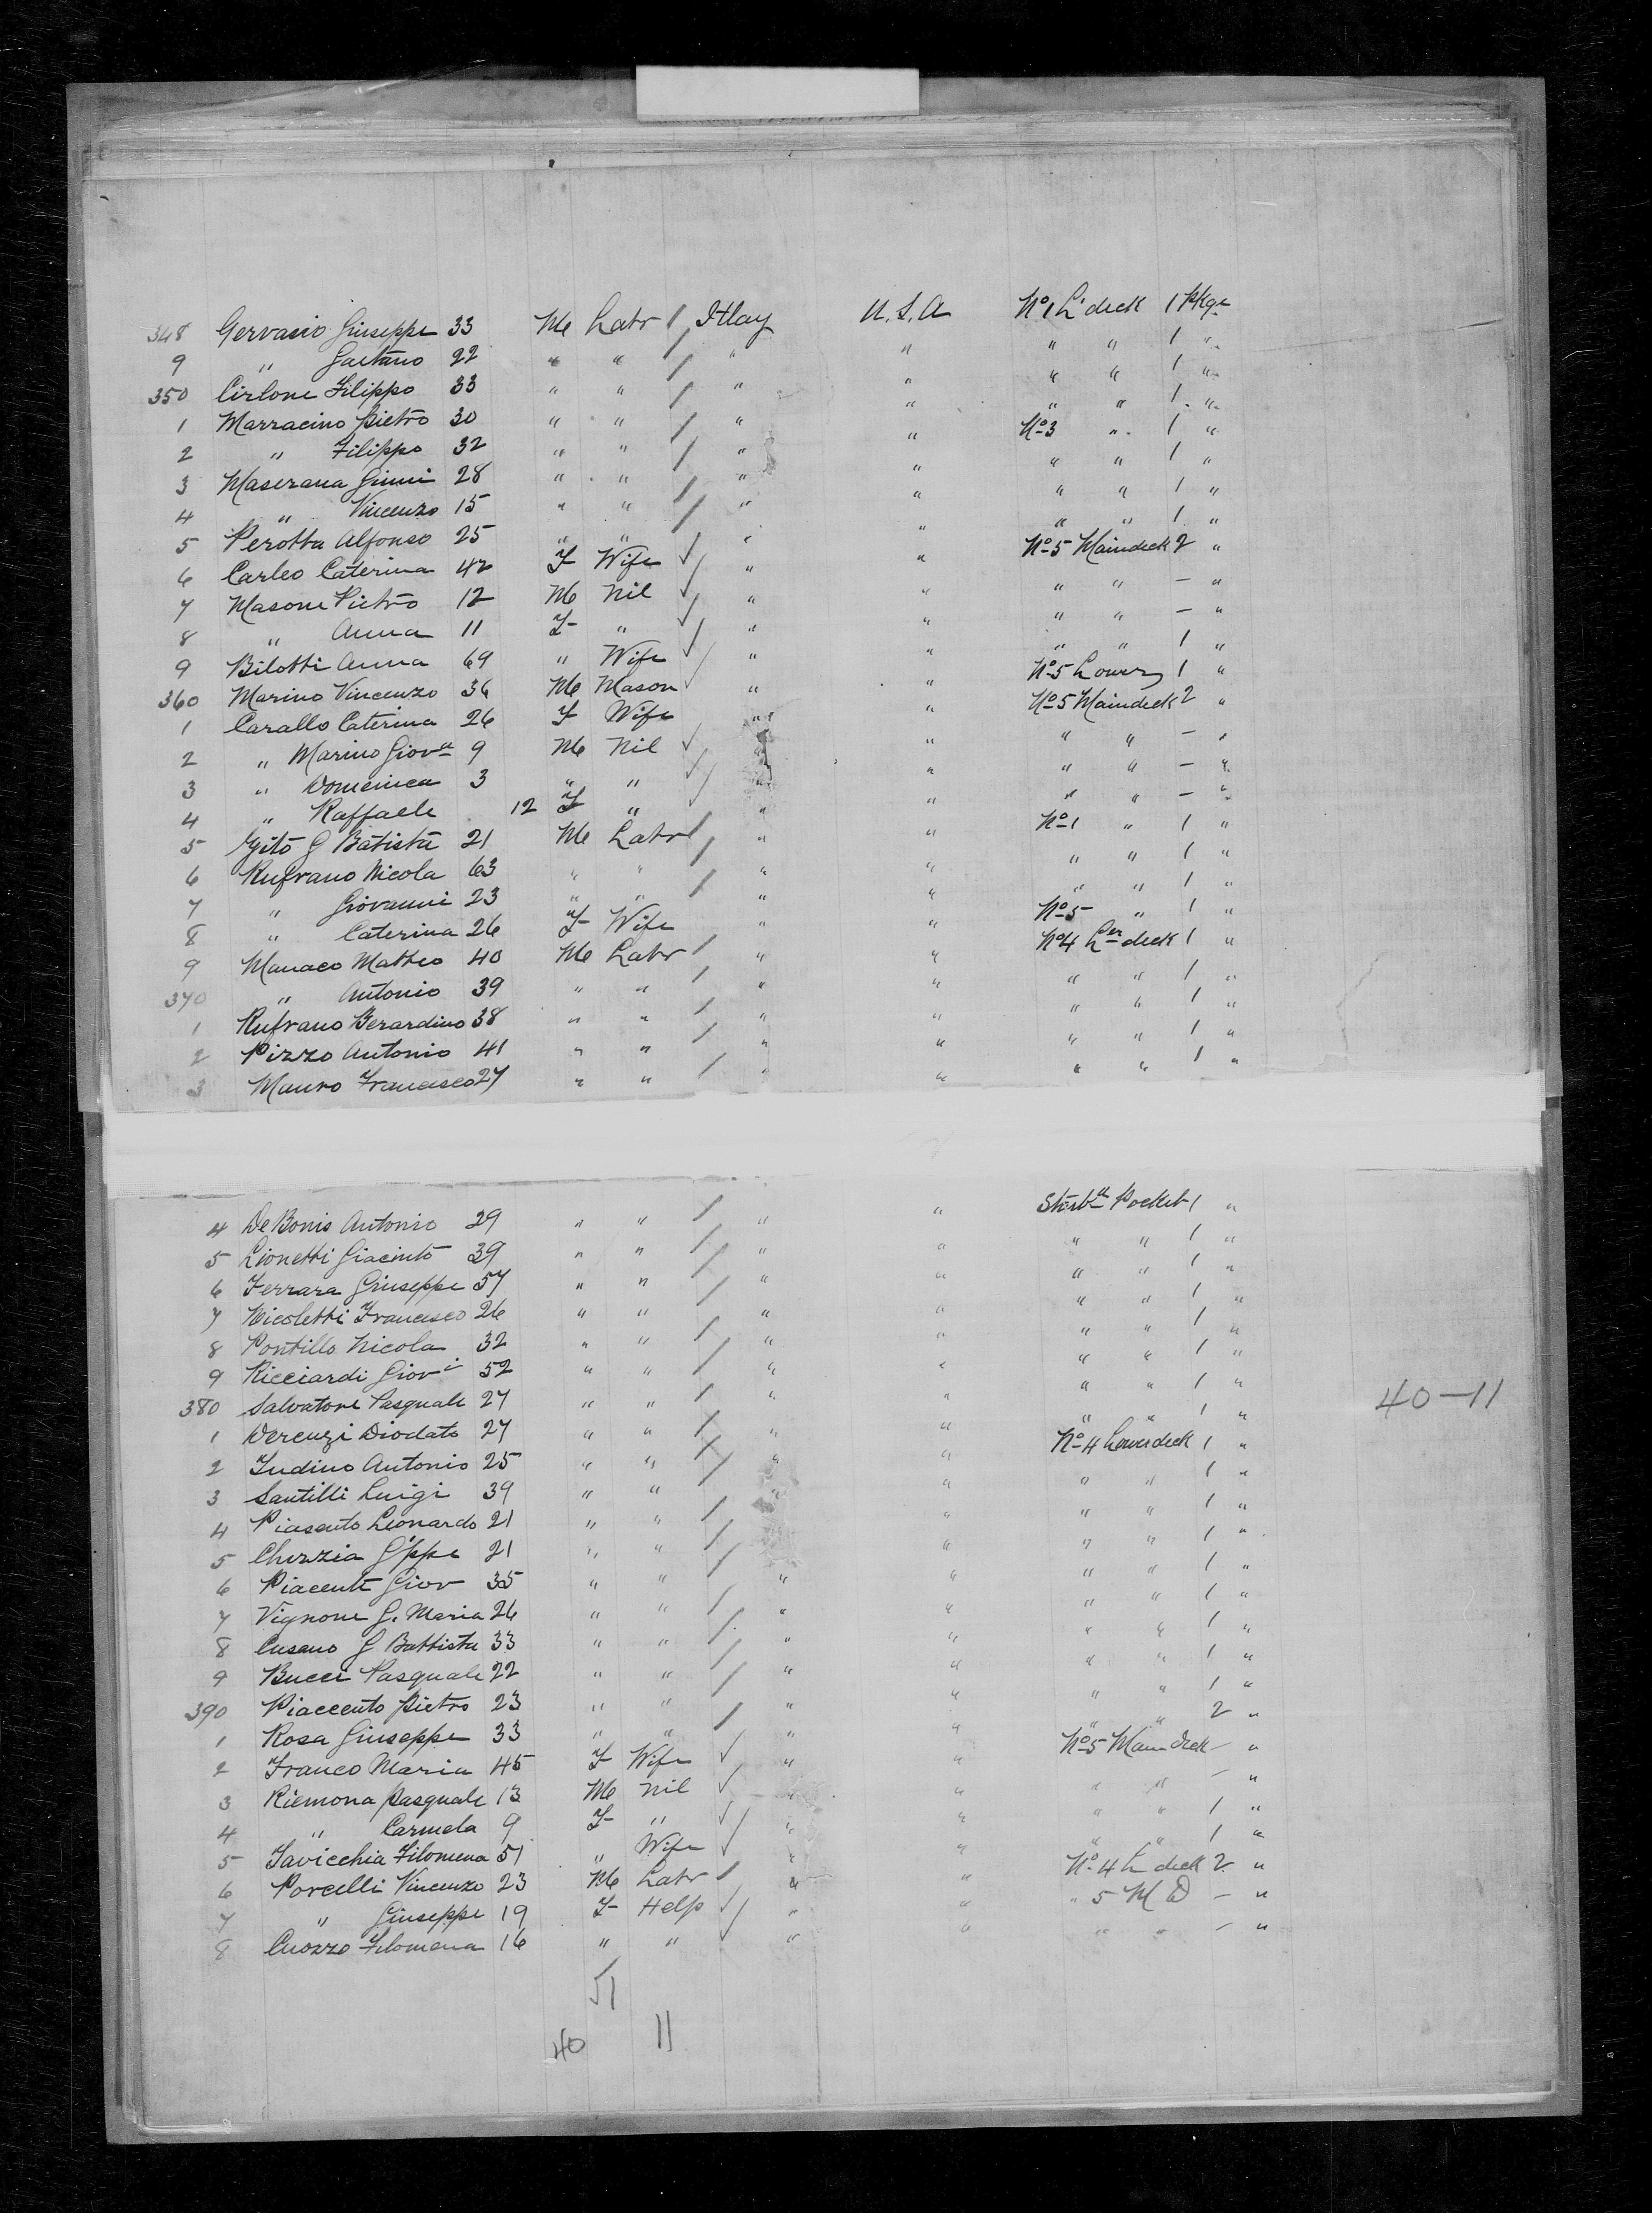 348 Gervasio Giuseppe 33 M Labr / Itlay U.S.A No 1 L' deck 1 Pkge
9 " Gaetano 22 " " / " " " " 1 "
350 Cirlone Filippo 33 " " / " " " " 1 "
1 Marracino Pietro 30 " " / " " " " 1 "
2 " Filippo 32 " " / " " No 3 " 1 "
3 Maserana Giuni 28 " " / " " " " 1 "
4 " Vincenzo 15 " " / " " " " 1 "
5 Perotta Alfonso 25 " " " " " " 1 "
6 Carleo Caterina 42 F Wife √ " " No 5 Maindeck 2 "
7 Masone Pietro 12 M Nil √ " " " " — "
8 " Anna 11 F " √ " " " " — "
9 Bilotti Anna 69 " Wife √ " " " " 1 "
360 Marino Vincenzo 36 M Mason √ " " No 5 Lower 1 "
1 Carallo Caterina 26 F Wife " " No 5 Maindeck 2 "
2 " Marino Giova 9 M Nil √ " " " " — "
3 " Domenica 3 " " √ " " " " — "
4 " Raffaele 12 F " √ " " " " — "
5 Gito G Batista 21 M Labr / " " No 1 " 1 "
6 Rufrano Nicola 63 " " / " " " " 1 "
7 " Giovanni 23 " " " " " " 1 "
8 " Caterina 26 F Wife " " No 5 " 1 "
9 Manaco Matteo 40 M Labr / " " No 4 Lr deck 1 "
370 " Antonio 39 " " / " " " " 1 "
1 Rufrano Berardino 38 " " / " " " " 1 "
2 Pizzo Antonio 41 " " / " " " " 1 "
3 Mauro Francesco 27 " " / " " " " 1 "
4 De Bonis Antonio 29 " " / " " Starbd Pocket 1 "
5 Lionetti Giacinto 39 " " / " " " " 1 "
6 Ferrara Giuseppe 57 " " / " " " " 1 "
7 Nicoletti Francesco 26 " " / " " " " 1 "
8 Pontillo Nicola 32 " " / " " " " 1 "
9 Ricciardi Giovi 52 " " / " " " " 1 "
380 Salvatore Pasquale 27 " " / " " " " 1 " 40—11
1 Derenzi Diodato 27 " " / " " " " 1 "
2 Iudino Antonio 25 " " / " " No 4 Lowerdeck 1 "
3 Santilli Luigi 39 " " / " " " " 1 "
4 Piasento Leonardo 21 " " / " " " " 1 "
5 Chuzzia G'ppe 21 " " / " " " " 1 "
6 Piacente Giov 35 " " / " " " " 1 "
7 Vignone G. Maria 26 " " / " " " " 1 "
8 Cusano G Battista 33 " " / " " " " 1 "
9 Bucci Pasquale 22 " " / " " " " 1 "
390 Piaccento Pietro 23 " " / " " " " 1 "
1 Rosa Giuseppe 33 " " / " " " " 2 "
2 Franco Maria 45 F Wife √ " " No 5 Main deck — "
3 Riemona Pasquale 13 M Nil √ " " " " — "
4 " Carmela 9 F " √ " " " " 1 "
5 Iavicchia Filomena 51 " Wife √ " " " " 1 "
6 Porcelli Vincenzo 23 M Labr / " " No 4 L deck 2 "
7 " Giuseppe 19 F Help √ " " " 5 M D — "
8 Cuozzo Filomena 16 " " √ " " " " — "
51
40 11